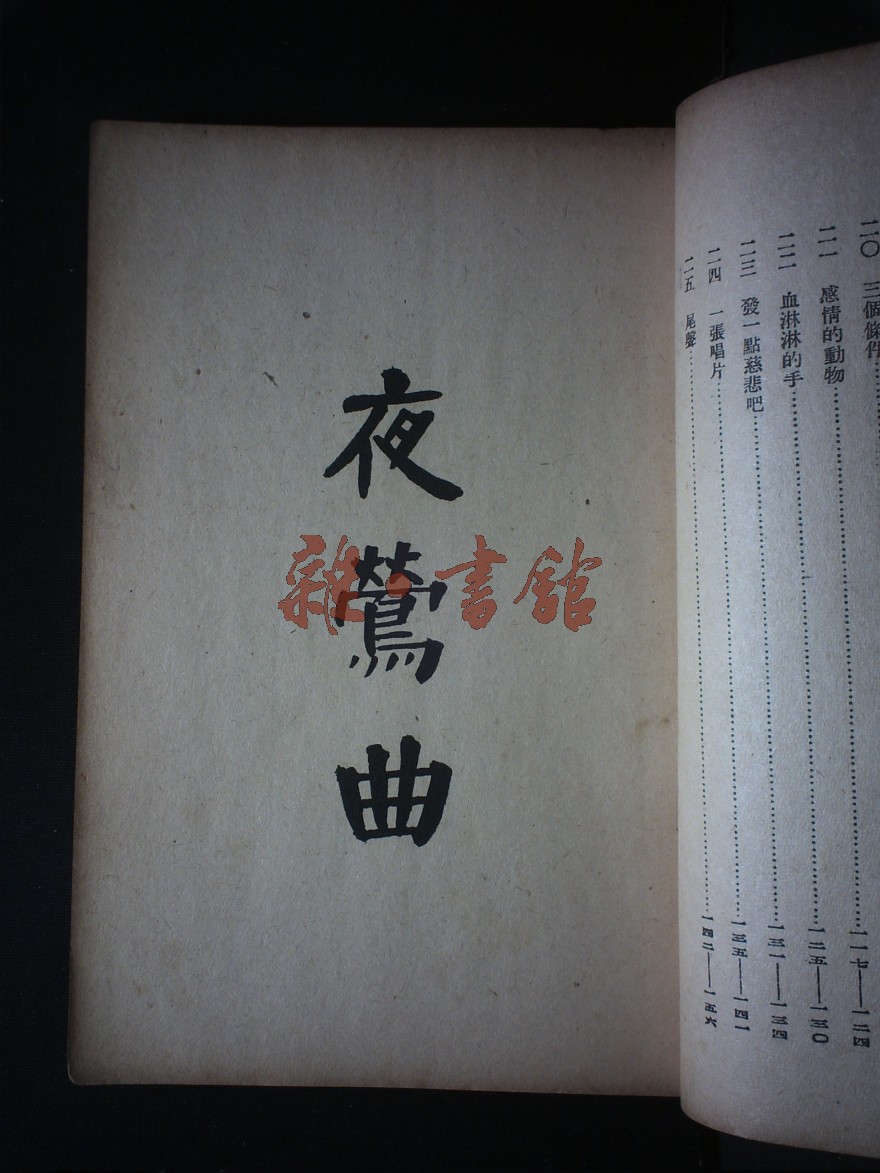 二〇 三個條件
二一 感情的動物……一一七——一二四
二二 血淋淋的手……一二五——一三〇
二三 發一點慈悲吧……一三一——一三四
二四 一張唱片……一三五——一四一
二五 尾聲……一四二——一五六
夜鶯曲
雜·書館